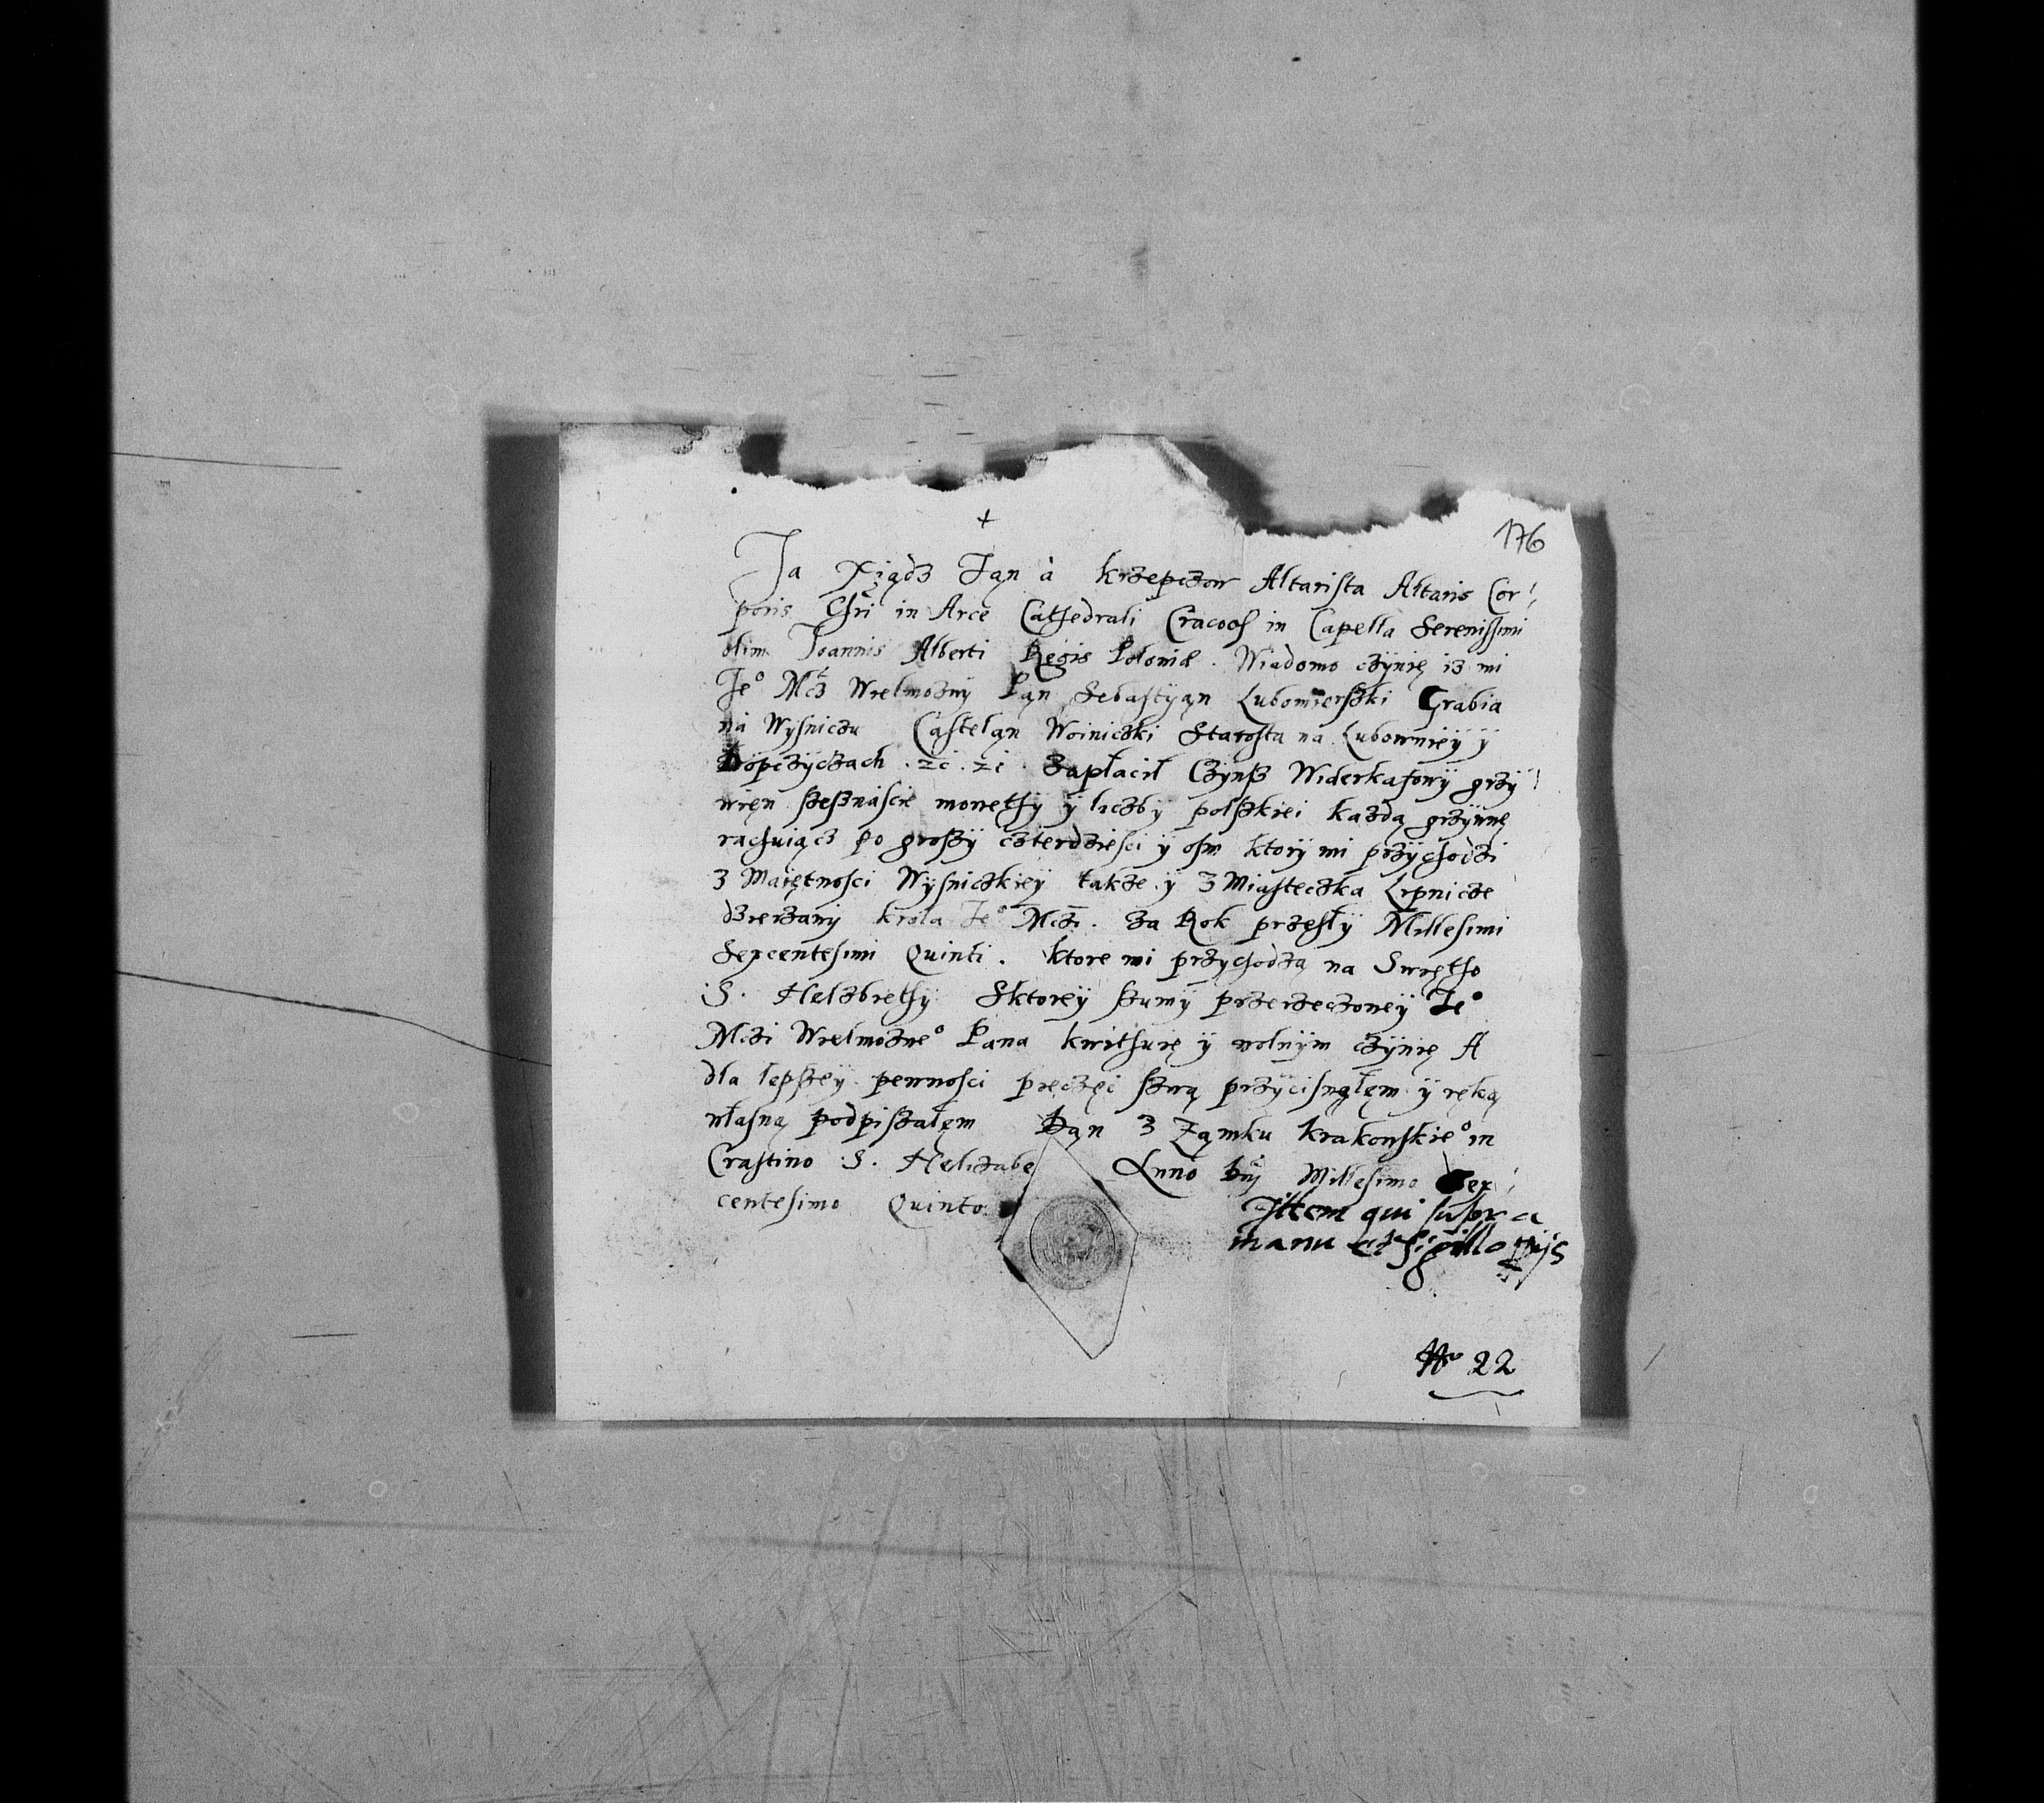 +
176
Ja Xiądz Jan à Krzepczow Altarista Altaris Cor
poris Chri in Arce Cathedrali Cracoos in Capella Serenissimi
olim Joannis Alberti Regis Poloniæ. Wiadomo czÿnię iz mi
Je° Mcz Wielmozny Pąn Sebastÿąn Lubomierszki Grabia
na Wysniczu Casteląn Woiniczki Starosta na Lubowniey ÿ
Dopczyczach. zapłacił Czÿnsz Widerkafowÿ grzÿ
więn szesznascie monethy ÿ liczby polszkiei kazdą grzÿwnę
rachuiącz po groszÿ czterdziesci ÿ osm ktorÿ mi przÿchodzi
z Maiętnosci Wysniczkieÿ także ÿ z Miasteczka Lipnicze
dzierzawy krola Je° Mczi. za Rok przeszłÿ Millesimi
Sexcentesimi Quinti. ktore mi przychodzą na Swiętho
S. Helzbiethy Sktoreÿ szumÿ przerzeczoneÿ Je°
Mczi Wielmozne° Pana kwithuię ÿ wolnÿm czÿnię A
dla lepszeÿ pewnosci pieczęć szwą przÿcisnąłęm ÿ ręką
własną podpiszałęm Dąn z Ząmku krakowskie° in
Crastino S. Helizabe Anno Dnj Millesimo Sex
centesimo Quinto
Jttem qui supra
manu et sigillo
No 22